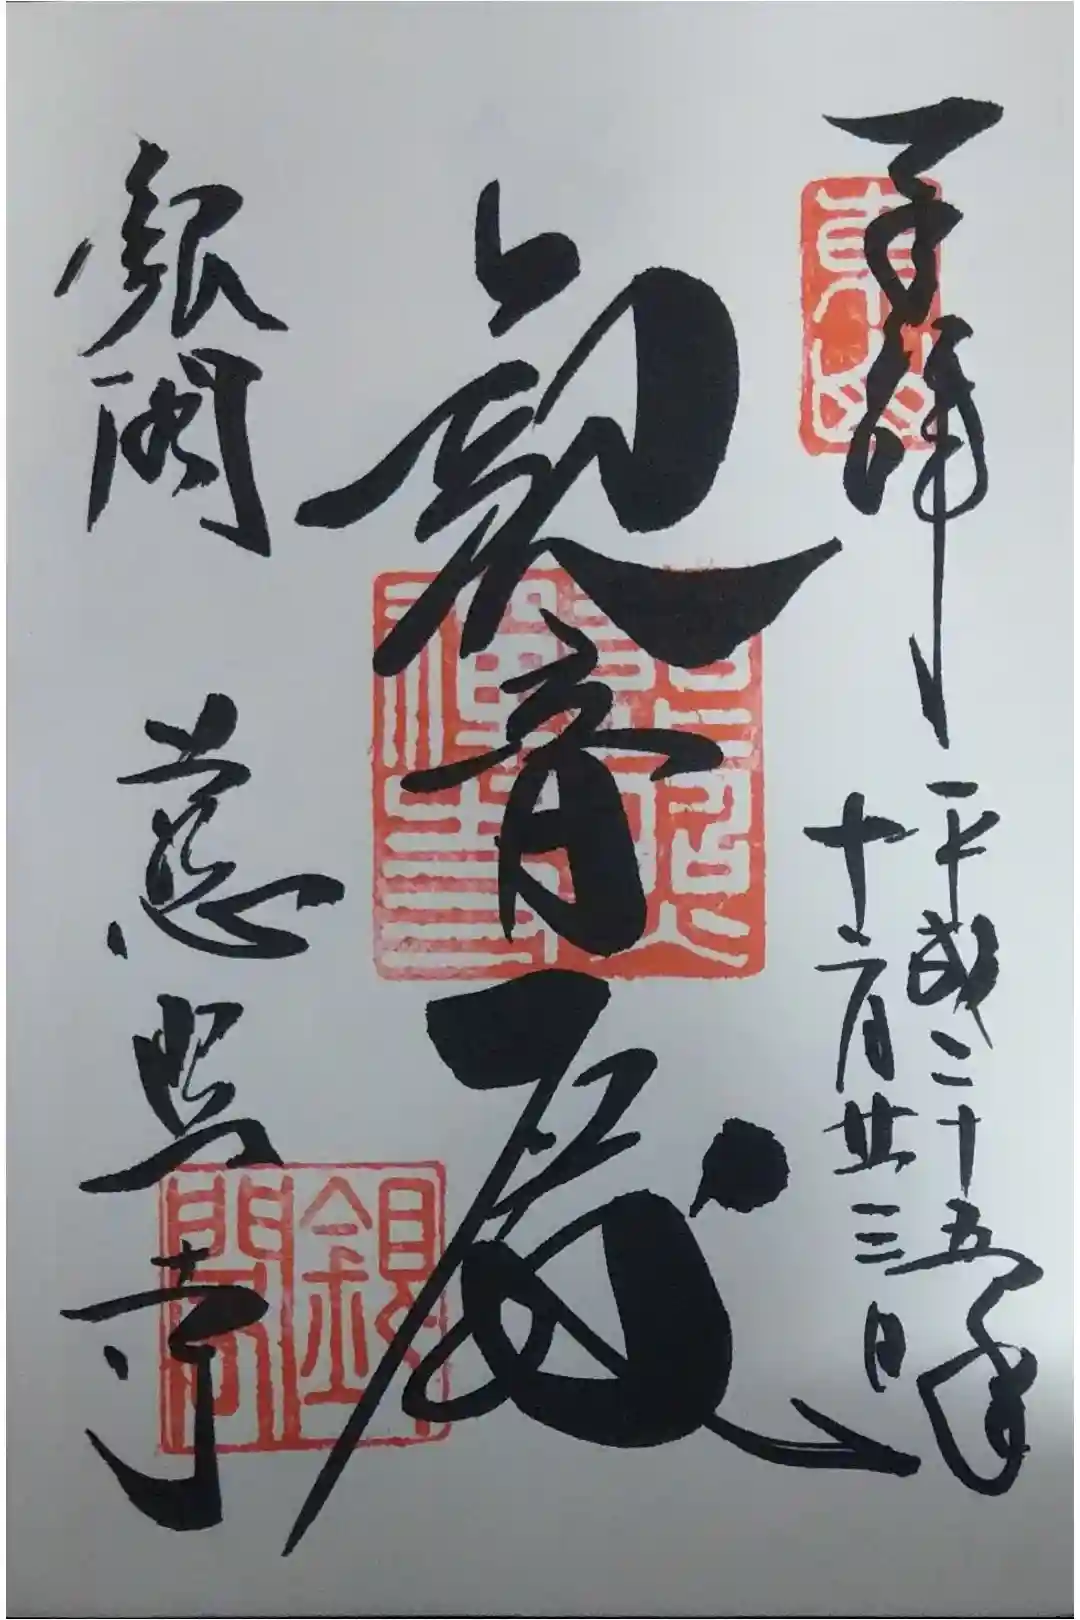 奉拝
平成二十五年
十二月廿三日
東山
観音殿
慈照禅寺
銀閣 慈照寺
銀閣